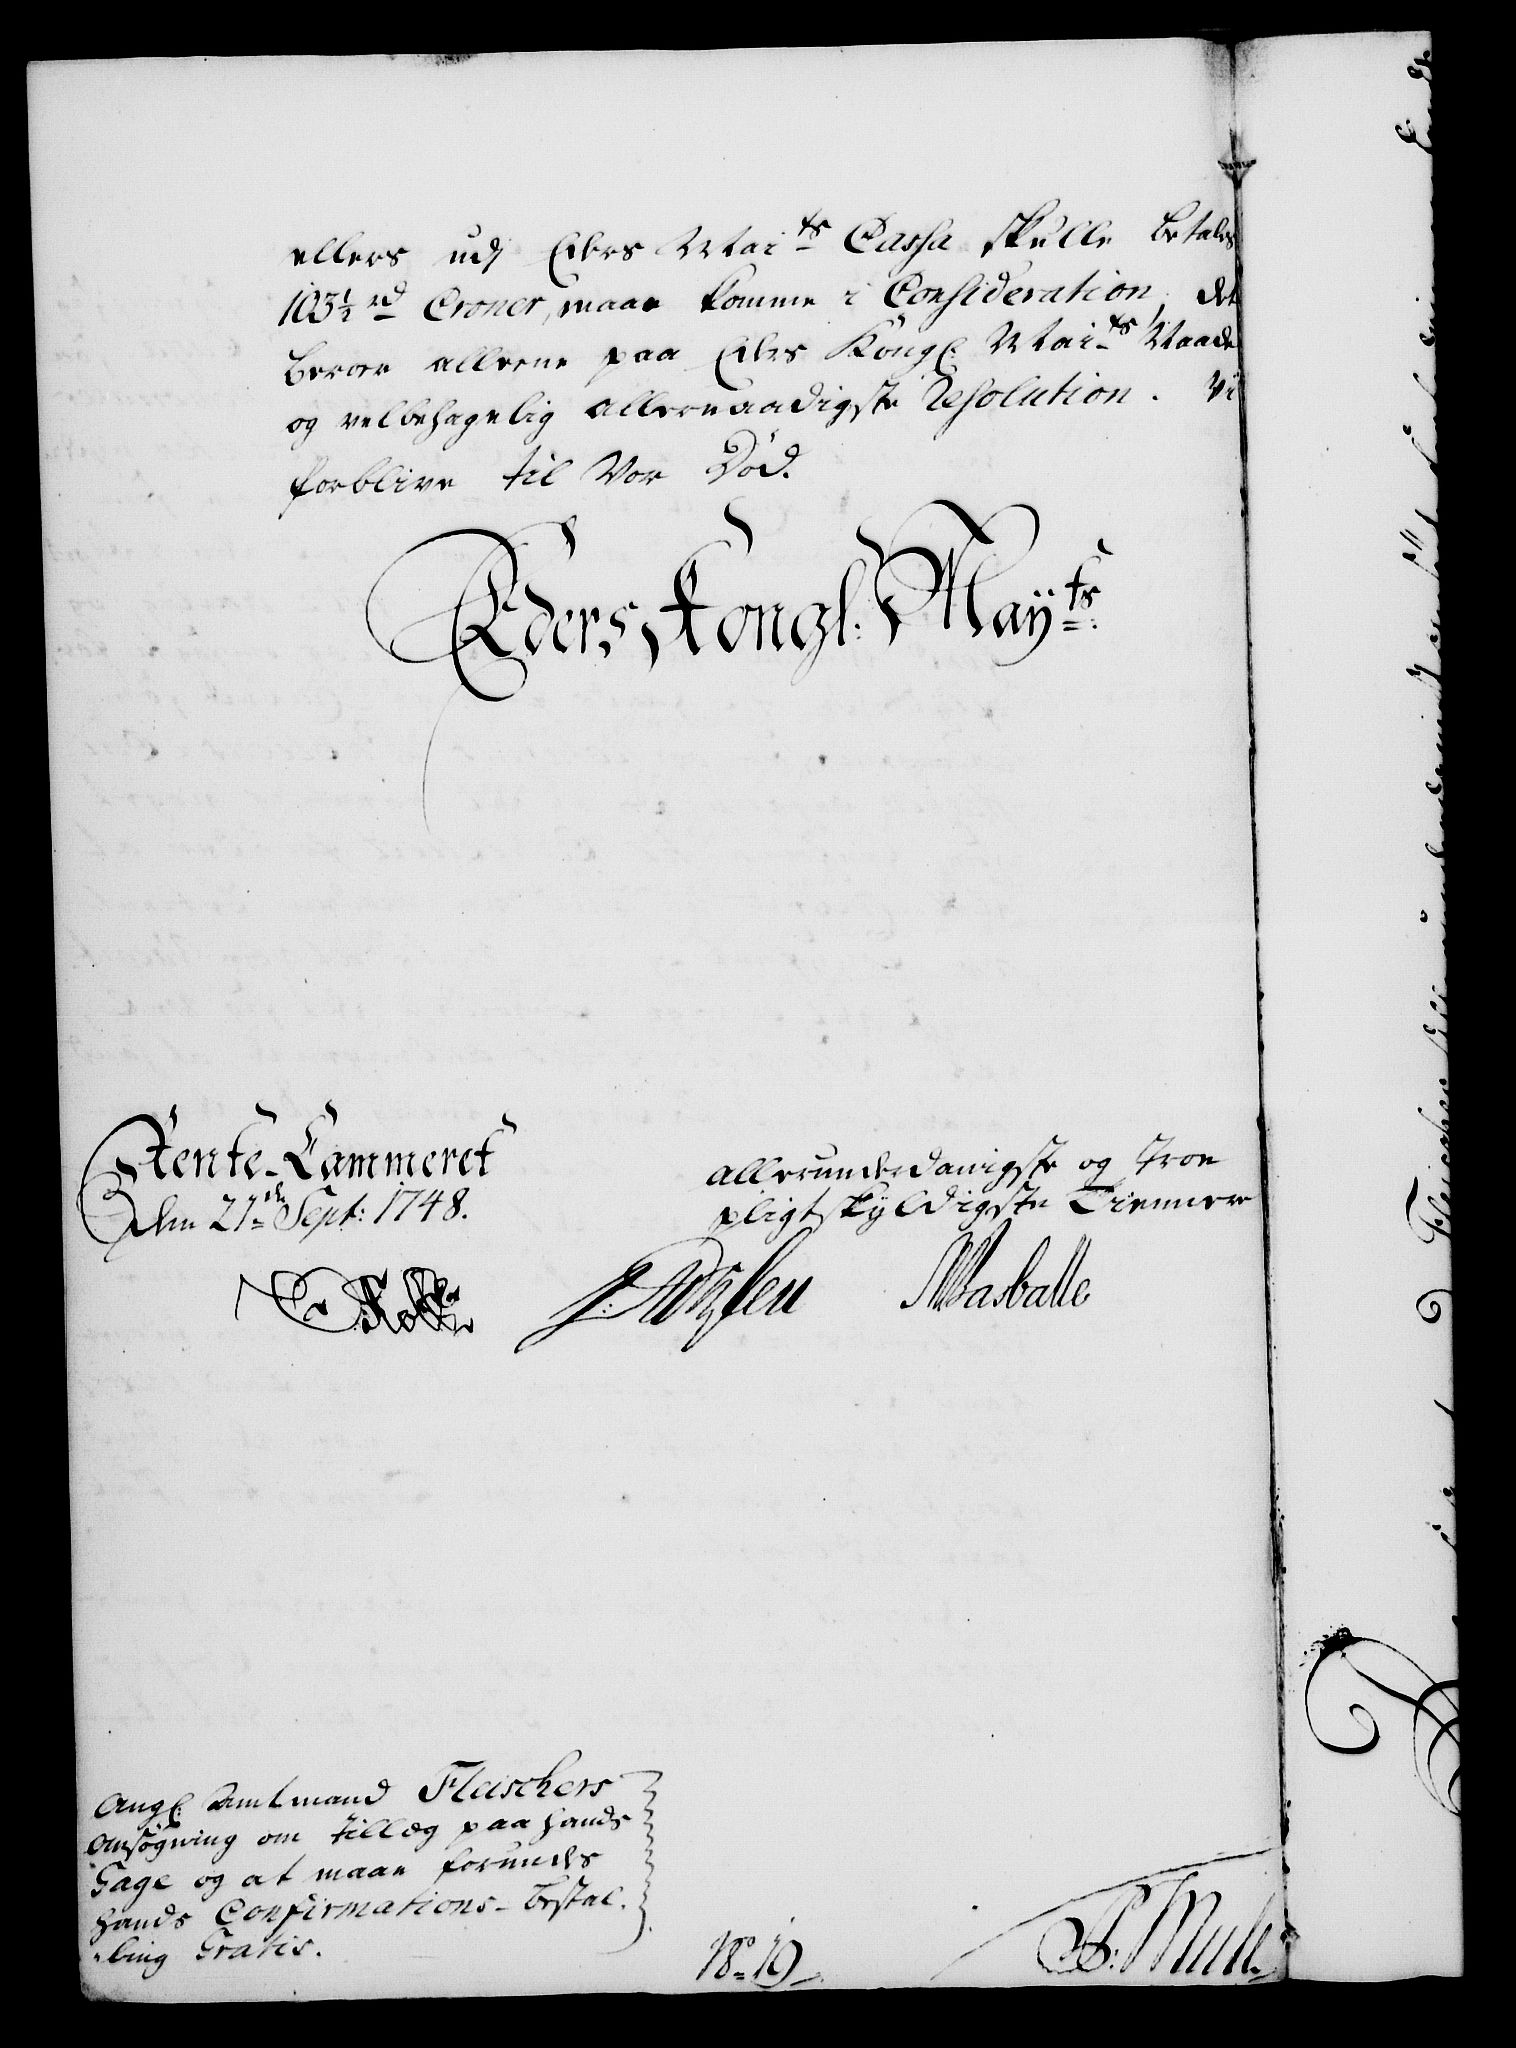 ellers udj Eders Mai<sup>ts</sup> Cassa skulle betales
103½ rd Croner, maae komme i Consideration, det
beroer alleene paa Eders Kongl: Mai<sup>ts</sup> Naade
og velbehagelig allernaadigste Resolution. Vi
forblive til Vor Död.
Eders Kongl: May<sup>ts</sup>:
Rente-Cammeret
den 21<sup>de</sup> Sept: 1748.
allerunderdanigste og troe
pligtskyldigste Tiennere
Masballe
Angl: Amtmand Fleischers
Ansögning om tillæg paa hands
Gage og at maae forundes
hands Confirmations-bestal-
ling Gratis.
No 19